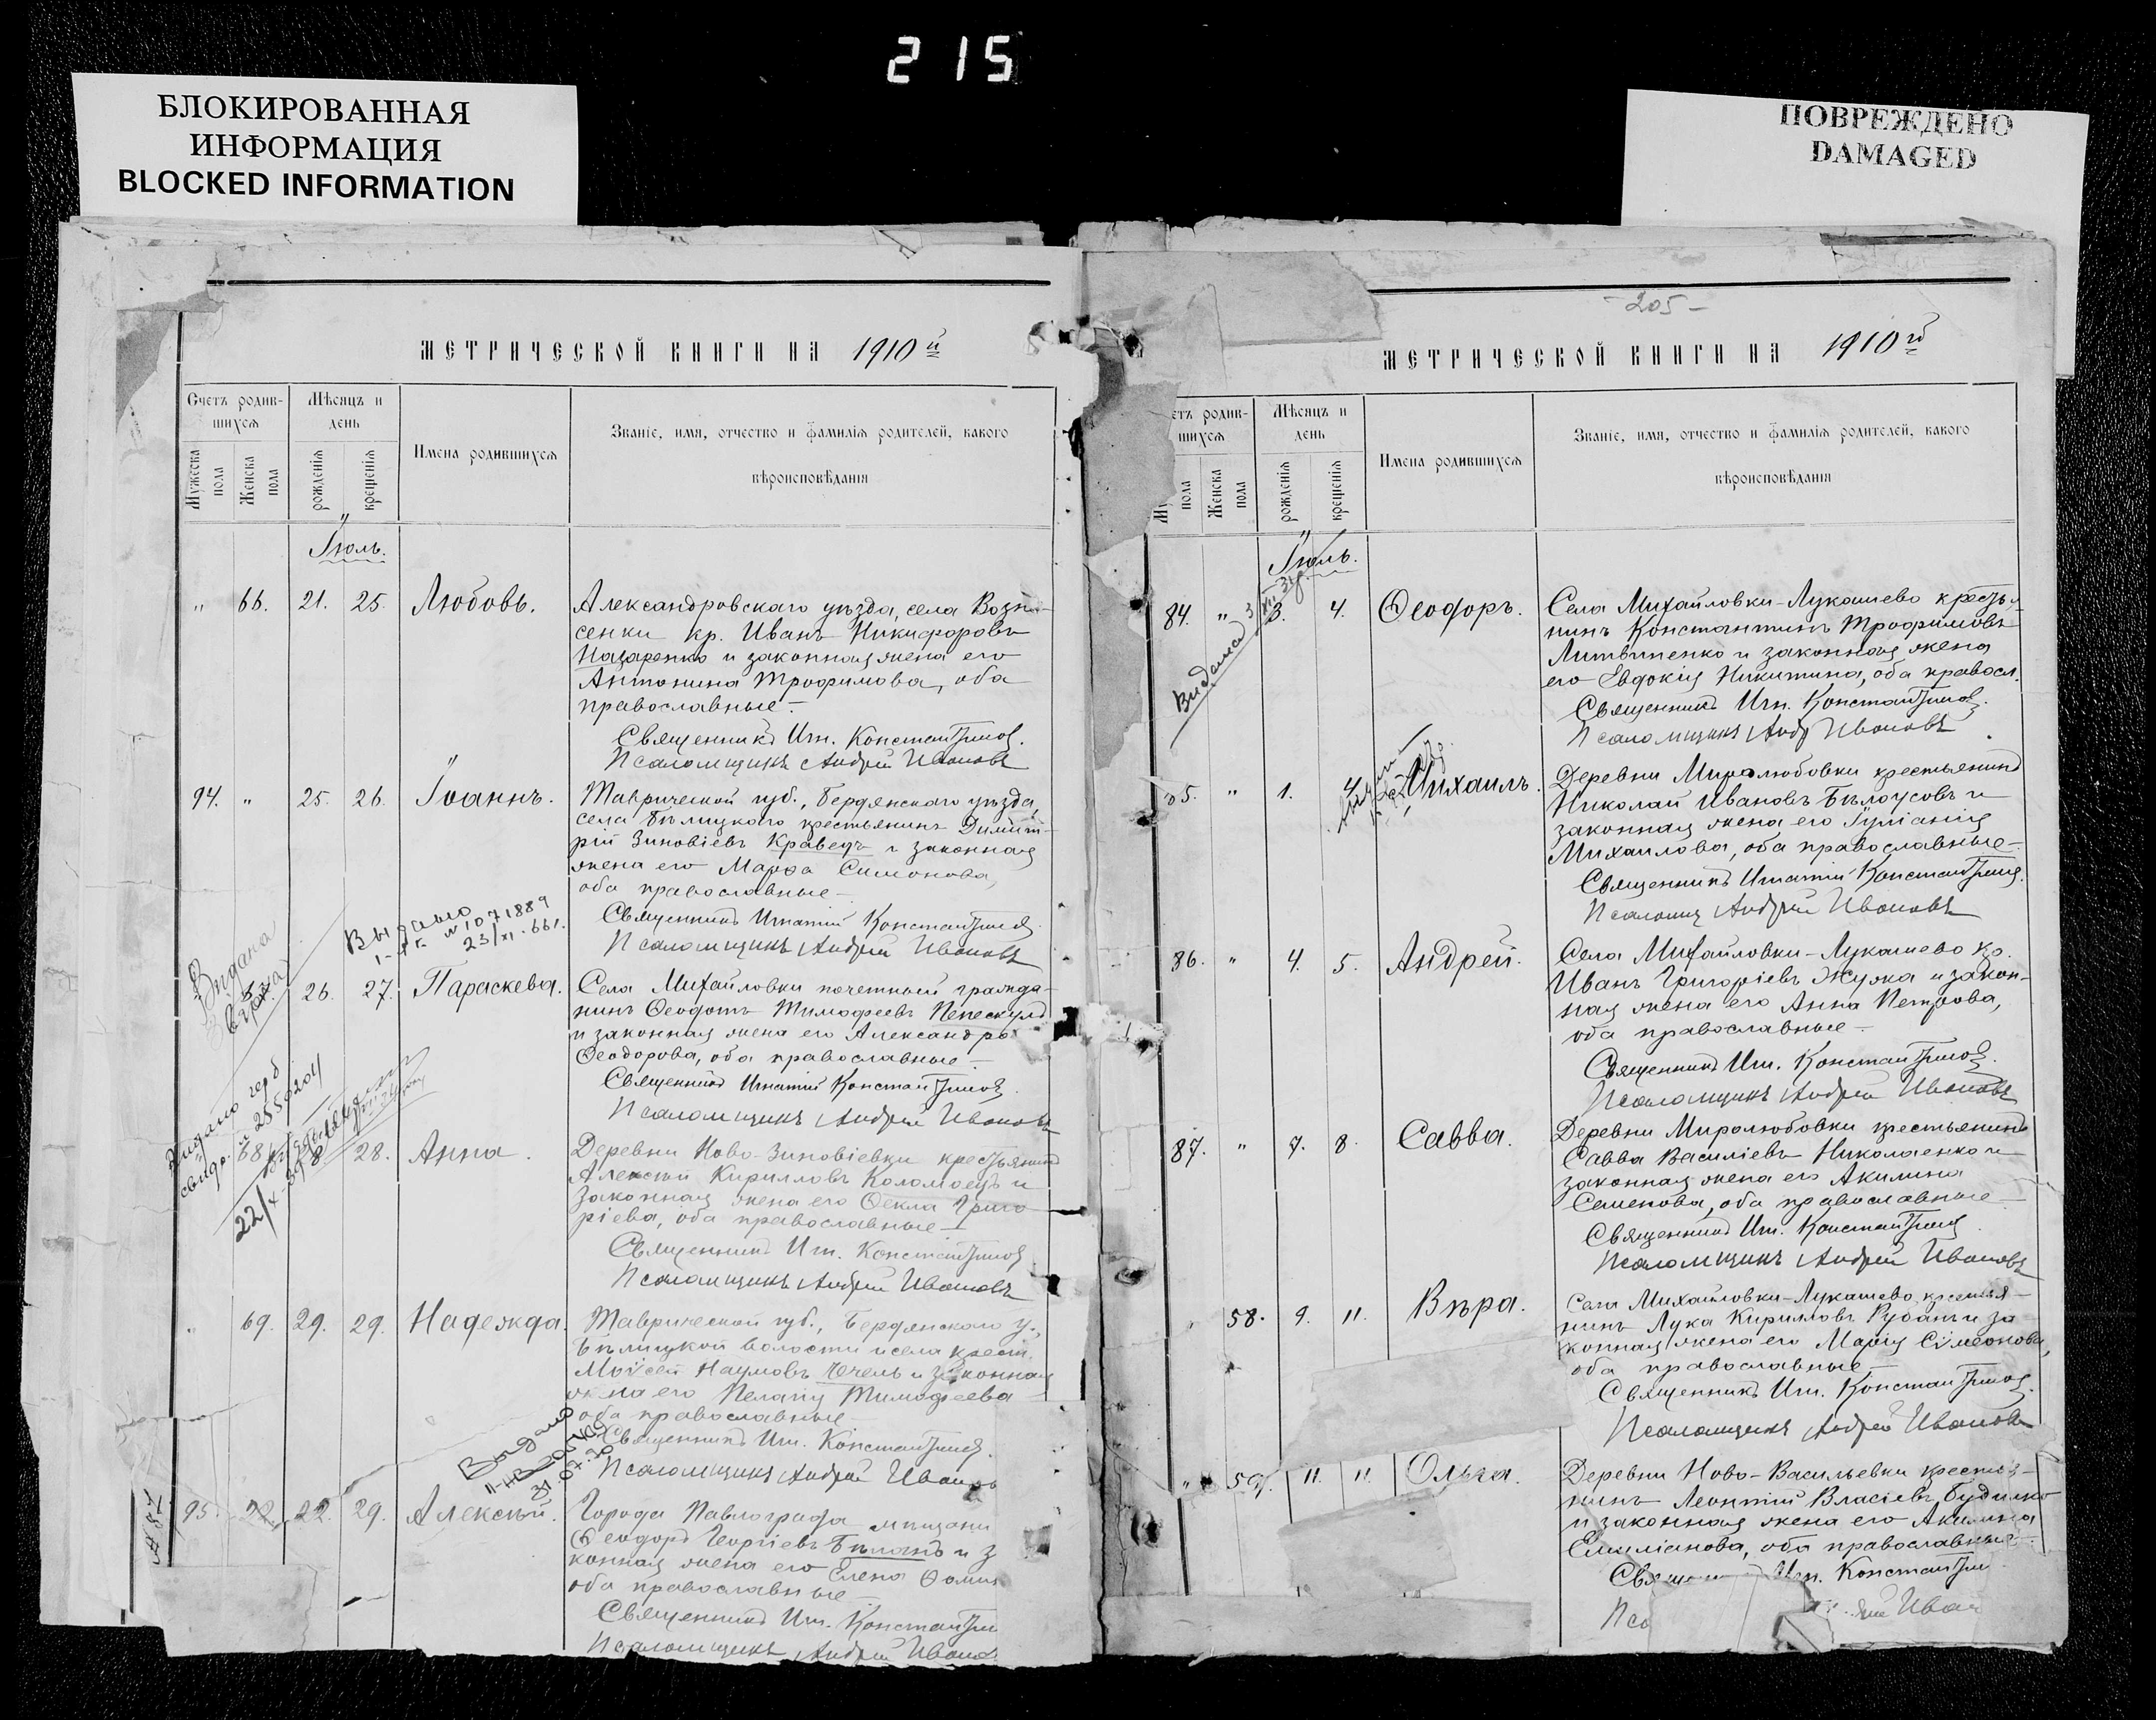 215
БЛОКИРОВАННАЯ
ИНФОРМАЦИЯ
BLOCKED INFORMATION
ПОВРЕЖДЕНО
DAMAGED
МЕТРИЧЕСКОЙ КНИГИ НА 1910й
Счетъ родив-
шихся
Мѣсяцъ и
день
Имена родившихся
Званіе, имя, отчество и фамилія родителей, какого
вѣроисповѣданія
Мужеска
пола
Женска
пола
рожденія
крещенія
Іюль.
" 66. 21. 25. Любовь.
Александровскаго уѣзда, села Возне-
сенки кр. Иванъ Никифоровъ
Назаренко и законная жена его
Антонина Трофимова, оба
православные.
Священникъ Игн. Константинов.
Псаломщикъ Андрей Ивановъ
94. " 25. 26. Іоаннъ.
Таврической губ., Бердянскаго уѣзда,
села Бѣлицкаго крестьянинъ Димит-
рій Зиновіевъ Кравецъ и законная
жена его Марфа Симонова,
оба православные
Священникъ Игнатій Константинов.
Псаломщикъ Андрей Ивановъ
Выдано
N 1071889
23/XI-66 г.
Видана
26. 27. Параскева.
Села Михайловки почетный гражда-
нинъ Ѳеодотъ Тимофеевъ Пепескулъ
и законная жена его Александра
Ѳеодорова, оба православные
Священникъ Игнатій Константинов.
Псаломщикъ Андрей Ивановъ
Видано
свидо.
22/X-39
68. 28. Анна.
Деревни Ново-Зиновіевки крестьянинъ
Алексѣй Кирилловъ Коломоецъ и
законная жена его Ѳекла Григо-
ріева, оба православные
Священникъ Игн. Константинов
Псаломщикъ Андрей Ивановъ
" 69. 29. 29. Надежда.
Таврической губ., Бердянскаго у.,
Бѣлицкой волости и села крест.
Моѵсей Наумовъ и законная
жена его Пелагія Тимофеева
оба православные
Священникъ Игн. Константинов.
Псаломщикъ Андрей Ивановъ
Выдано
95. 22. 22. 29. Алексѣй.
Города Павлограда мѣщани
Ѳеодоръ Георгіевъ Бѣланъ и з
конная жена его Елена Ѳомин
оба православные
Священникъ Игн. Константин
Псаломщикъ Андрей Иванов
-205-
МЕТРИЧЕСКОЙ КНИГИ НА 1910й
етъ родив-
шихся
Мѣсяцъ и
день
Имена родившихся
Званіе, имя, отчество и фамилія родителей, какого
вѣроисповѣданія
пола
Женска
пола
рожденія
крещенія
Іюль.
84. " 3. 4. Ѳеодоръ.
Видана
Села Михайловки-Лукашево крестья-
нинъ Константинъ Трофимовъ
Литвиненко и законная жена
его Евдокія Никитина, оба правосл.
Священникъ Игн. Константинов.
Псаломщикъ Андр Ивановъ
85. " 1. 4. Михаилъ.
Деревни Миролюбовки крестьянинъ
Николай Ивановъ Бѣлоусовъ и
законная жена его Іуліанія
Михаилова, оба православные
Священникъ Игнатій Константинов.
Псаломщ Андрей Ивановъ
86. " 4. 5. Андрей.
Села Михайловки-Лукашево кр.
Иванъ Григоріевъ Жужа и закон-
ная жена его Анна Петрова,
оба православные
Священникъ Игн. Константинов.
Псаломщикъ Андрей Ивановъ
87. " 7. 8. Савва.
Деревни Миролюбовки крестьянинъ
Савва Василіевъ Николаенко и
законная жена его Акилина
Семенова, оба православные
Священникъ Игн. Константинов.
Псаломщикъ Андрей Ивановъ
" 58. 9. 11. Вѣра.
Села Михайловки-Лукашево крестья-
нинъ Лука Кирилловъ Рубанъ и за-
конная жена его Марія Сѵмеонова,
оба православные
Священникъ Игн. Константинов.
Псаломщикъ Андрей Ивановъ
" 59. 11. 11. Ольга.
Деревни Ново-Васильевки крестья-
нинъ Леонтій Власіевъ Будилко
и законная жена его Акилина
Емиліанова, оба православные
Игн. Константин
Псо
Иван